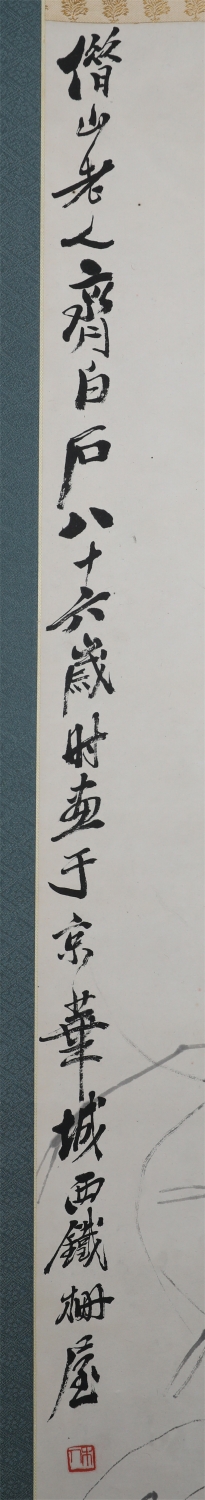 借山老人齊白石八十六歲时畫于京華城西鐵柵屋
木人